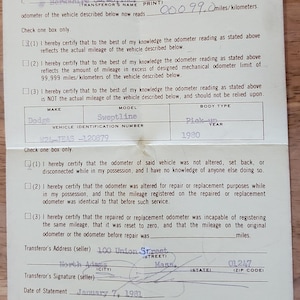 TRANSFEROR'S NAME PRINT)
odometer of the vehicle described below now reads 00099.0 miles/kilometers.
Check one box only
(1) I hereby certify that to the best of my knowledge the odometer reading as stated above
reflects the actual mileage of the vehicle described below.
(2) I hereby certify that to the best of my knowledge the odometer reading as stated above
reflects the amount of mileage in excess of designed mechanical odometer limit of
99,999 miles/kilometers of the vehicle described below.
(3) I hereby certify that to the best of my knowledge the odometer reading as stated above
is NOT the actual mileage of the vehicle described below, and should not be relied upon.
MAKE MODEL BODY TYPE
Dodge Sweptline Pick-up
VEHICLE IDENTIFICATION NUMBER YEAR
1980
Check one box only.
(1) I hereby certify that the odometer of said vehicle was not altered, set back, or
disconnected while in my possession, and I have no knowledge of anyone else doing so.
(2) I hereby certify that the odometer was altered for repair or replacement purposes while
in my possession, and that the mileage registered on the repaired or replacement
odometer was identical to that before such service.
(3) I hereby certify that the repaired or replacement odometer was incapable of registering
the same mileage, that it was reset to zero, and that the mileage on the original
odometer or the odometer before repair was miles
Transferor's Address (seller) 100 Union Street
(STREET)
North Adams Mass. 01247
(CITY) (STATE) (ZIP CODE)
Transferor's Signature (seller)
Date of Statement January 7, 1981